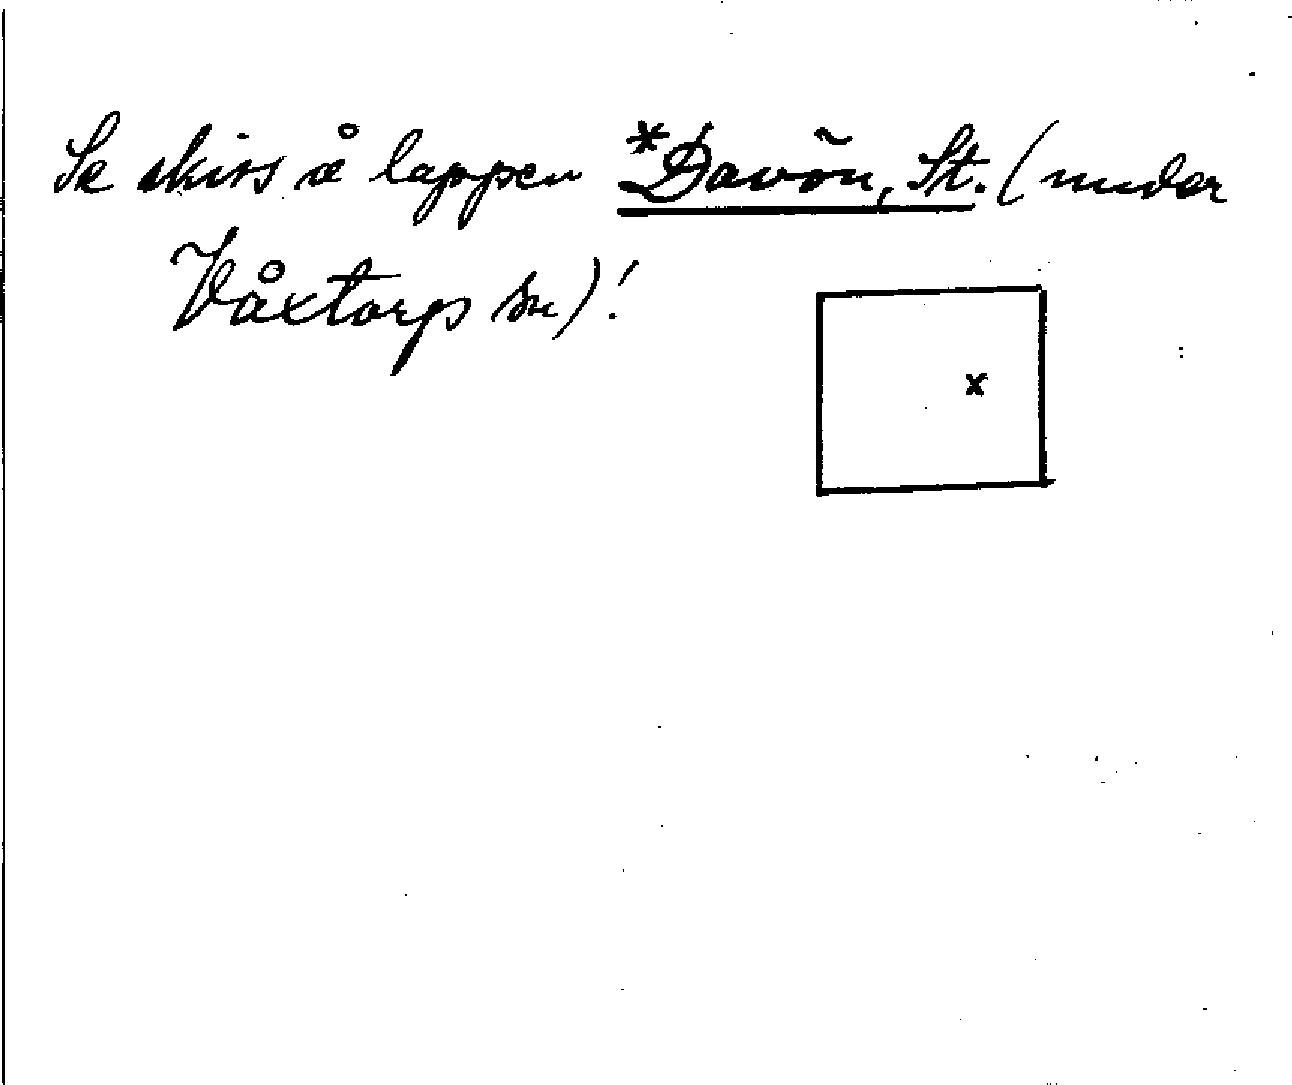 Se skiss å lappen *Davön, St. (under
Våxtorps sn)!
x